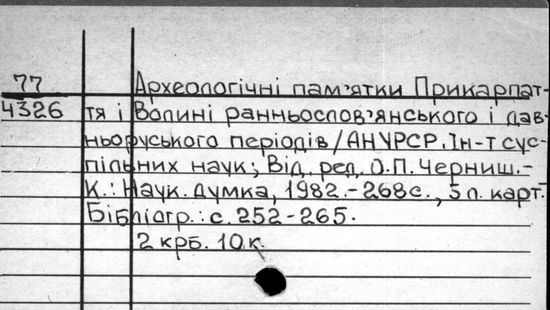 77 Археологічні пам'ятки Прикарпат-
4326 тя і Волині ранньослов'янського і дав-
ньоруського періодів/АН УРСР. Ін-т сус-
пільних наук; Від. ред. О.П. Черниш.-
К.: Наук. думка, 1982.-268с., 5 л. карт.
Бібліогр.: с. 252-265.
2 крб. 10 к.